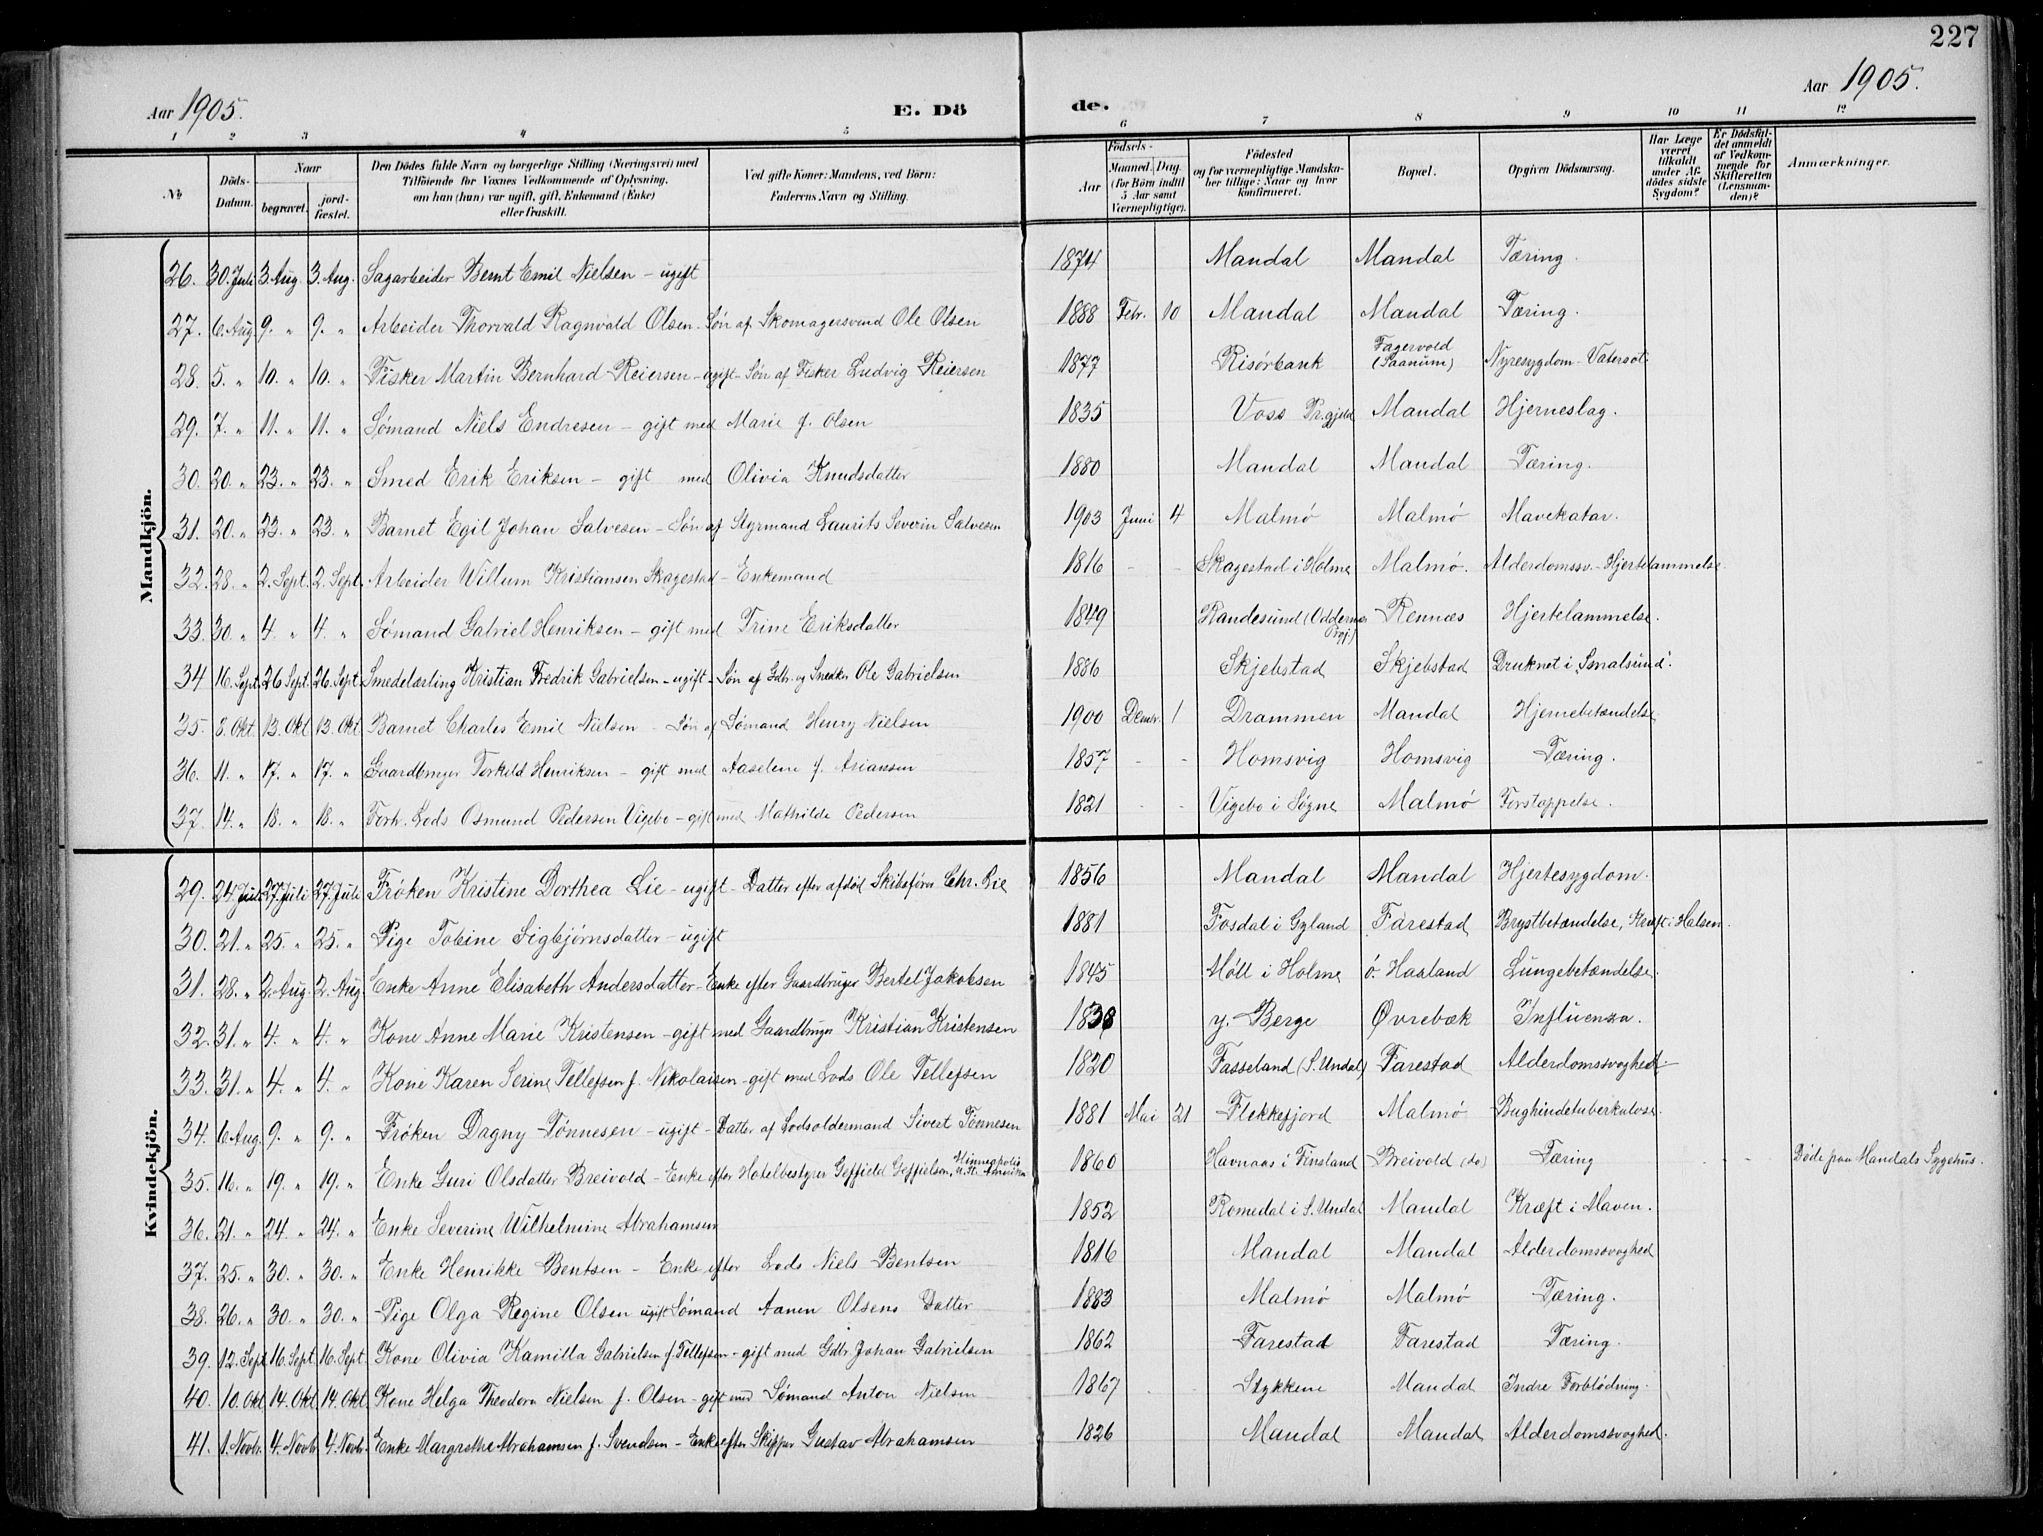 227
Aar 1905.
E. Dö
de.
Aar 1905.
1 2 3 4 5 6 7 8 9 10 11 12
№
Döds-Datum.
Naar
begravet.
jord-fæstet.
Den Dödes fulde Navn og borgerlige Stilling (Næringsvei) med
Tilföiende for Voxnes Vedkommende af Oplysning,
om han (hun) var ugift, gift, Enkemand (Enke)
eller fraskilt.
Ved gifte Koner: Mandens, ved Börn:
Faderens Navn og Stilling.
Födsels-
Aar
Maaned. Dag.
(for Börn indtil
5 Aar samt
Værnepligtige).
Födested
og for værnepligtige Mandska-
ber tillige: Naar og hvor
konfirmeret.
Bopæl.
Opgiven Dödsaarsag.
Har Læge
været
tilkaldt
under Af-
dödes sidste
Sygdom?
Er Dödsfal-
det anmeldt
af Vedkom-
mende for
Skifteretten
(Lensman-
den)?
Anmærkninger.
Mandkjön.
26. 30. Juli 3 Aug. 3. Aug. Sagarbeider Bernt Emil Nielsen - ugift 1874 Mandal Mandal Tæring.
27. 6. Aug. 9. " 9. " Arbeider Thorvald Ragnvald Olsen. Søn af Skomagersvend Ole Olsen 1888 Febr. 10 Mandal Mandal Tæring.
28. 5. " 10. " 10. " Fisker Martin Bernhard Reiersen - ugift - Søn af Fisker Ludvig Reiersen 1877 Risørbank Fagervold (Saanum) Nyresygdom - Vatersot
29. 7. " 11. " 11. " Sømand Niels Endresen - gift med Marie f. Olsen 1835 Voss Prgjeld Mandal Hjerneslag.
30. 20. " 23. " 23. " Smed Erik Eriksen - gift med Olivia Knudsdatter 1880 Mandal Mandal Tæring.
31. 20. " 23. " 23. " Barnet Egil Johan Salvesen - Søn af Styrmand Laurits Severin Salvesen 1903 Juni 4 Malmö Malmö Mavekatar.
32. 28. " 2. Sept. 2. Sept. Arbeider Willum Kristiansen Skagestad - Enkemand 1816 - - Skagestad i Holme Malmö. Alderdomssv. - Hjertelammelse.
33. 30. " 4. " 4. " Sømand Gabriel Henriksen - gift med Trine Eriksdatter 1849 Randesund (Oddernes Prgj.) Rennæs Hjertelammelse.
34 16. Sept. 26 Sept. 26. Sept. Smedelærling Kristian Fredrik Gabrielsen - ugift - Søn af Gdbr. og Snedker Ole Gabrielsen 1886 Skjebstad Skjebstad Druknet i "Smalsund".
35. 8. Okt. 13. Okt. 13. Okt. Barnet Charles Emil Nielsen - Søn af Sømand Henry Nielsen 1900 Decmbr. 1 Drammen Mandal Hjernebetændelse
36. 11. " 17. " 17. " Gaardbruger Torkild Henriksen - gift med Aaselene f. Ariansen 1857 - - Homsvig Homsvig Tæring.
37. 14. " 18. " 18. " Forh. Lods Osmund Pedersen Vigebo - gift med Mathilde Pedersen 1821 - - Vigebo i Søgne Malmö Forstoppelse.
Kvindekjön.
29. 24 Juli 27 Juli 27. Juli Frøken Kristine Dorthea Lie - ugift - Datter efter afdød Skibsförer Chr. Lie 1856 Mandal Mandal Hjertesygdom.
30. 21. " 25. " 25. " Pige Tobine Sigbjørnsdatter - ugift 1881 Fosdal i Gyland Farestad Brystbetændelse, Kræft i Halsen.
31. 28. " 2. Aug. 2. Aug. Enke Anne Elisabeth Andersdatter - Enke efter Gaardbruger Bertel Jakobsen 1845 Möll i Holme ö. Haaland Lungebetændelse.
32. 31. " 4. " 4. " Kone Anne Marie Kristensen - gift med Gaardbruger Kristian Kristensen 1838 y. Berge Øvrebæk Influenza.
33. 31. " 4. " 4. " Kone Karen Serine Tellefsen f. Nikolaisen - gift med Lods Ole Tellefsen 1820 Fasseland (S. Undal) Farestad Alderdomssvaghed.
34. 6 Aug. 9. " 9. " Frøken Dagny Tönnesen - ugift - Datter af Lodsoldermand Sivert Tönnesen 1881 Mai 21 Flekkefjord Malmö Bughindetuberkulose.
35. 16. " 19. " 19. " Enke Guri Olsdatter Breivold - Enke efter Hotelbestyrer Geffield Geffielsen, Minneapolis, N. A. Amerika 1860 Havnaas i Finsland Breivold (do) Tæring - - Döde paa Mandals Sygehus.
36. 21. " 24. " 24. " Enke Severine Wilhelmine Abrahamsen 1852 Romedal i S. Undal Mandal Kræft i Maven.
37. 25. " 30. " 30. " Enke Henrikke Bentsen - Enke efter Lods Niels Bentsen 1816 Mandal Mandal Alderdomssvaghed
38. 26. " 30. " 30. " Pige Olga Regine Olsen ugift Sømand Aanen Olsens Datter 1883 Malmö Malmö Tæring.
39. 12. Sept. 16. Sept. 16. Sept. Kone Olivia Kamilla Gabrielsen f. Tellefsen - gift med Gdbr. Johan Gabrielsen 1862 Farestad Farestad Tæring.
40. 10. Okt. 14. Okt. 14. Okt. Kone Helga Theodora Nielsen f. Olsen - gift med Sømand Anton Nielsen 1867 Stykkene Mandal Indre Forblødning.
41. 1. Novbr. 4. Novbr. 4. Novbr. Enke Margrethe Abrahamsen f. Svendsen - Enke efter Skipper Gustav Abrahamsen 1826 Mandal Mandal Alderdomssvaghed.